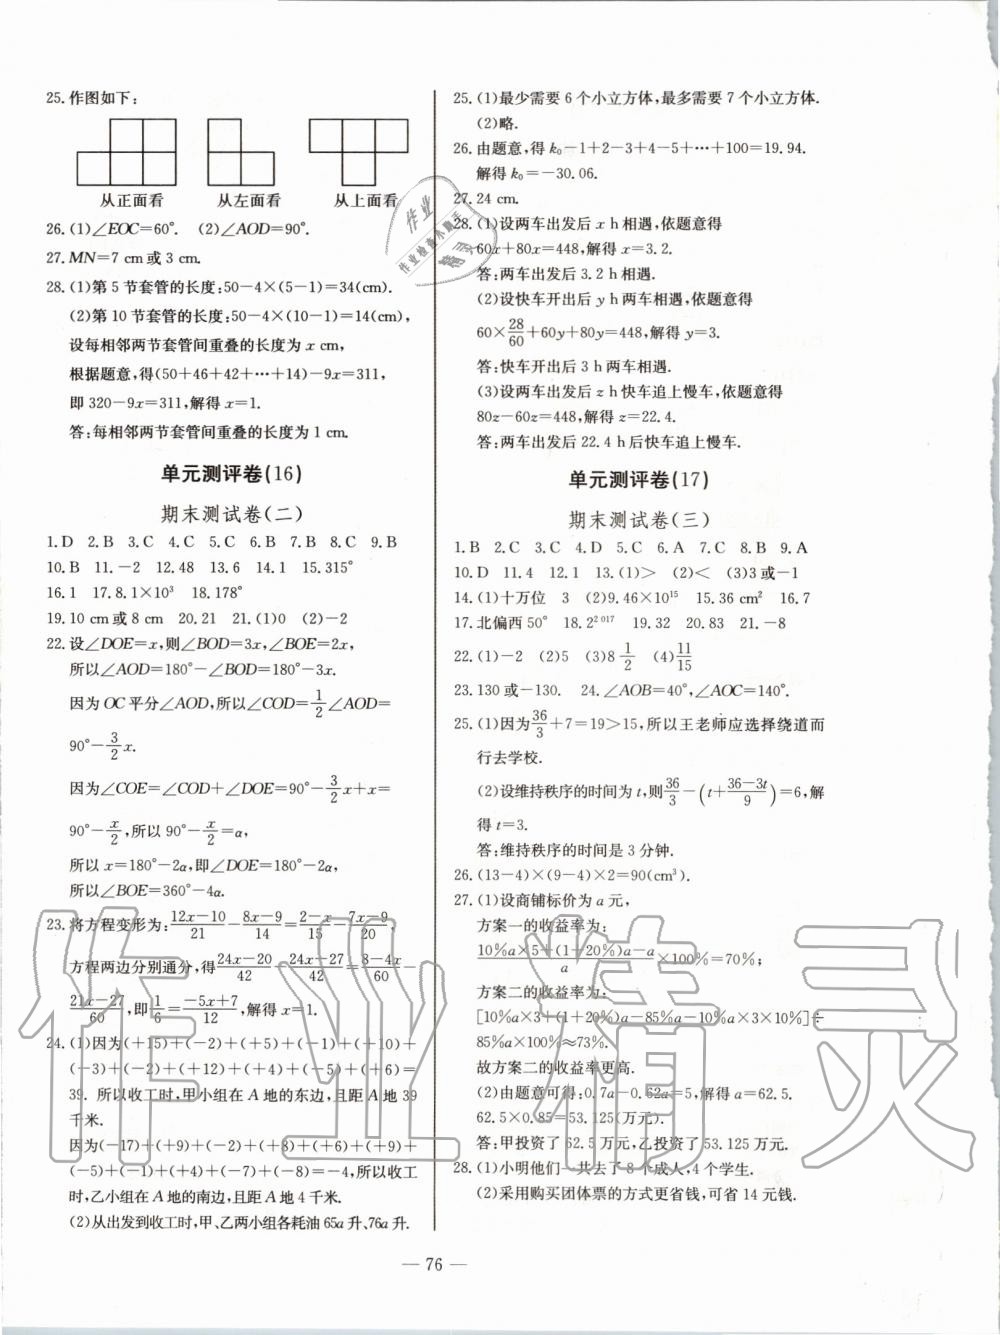 25. 作图如下:
从正面看 从左面看 从上面看
26. (1)∠EOC=60°. (2)∠AOD=90°.
27. MN=7 cm或3 cm.
28. (1)第5节套管的长度:50-4×(5-1)=34(cm).
(2)第10节套管的长度:50-4×(10-1)=14(cm),
设每相邻两节套管间重叠的长度为x cm,
根据题意,得(50+46+42+…+14)-9x=311,
即320-9x=311,解得x=1.
答:每相邻两节套管间重叠的长度为1 cm.
单元测评卷(16)
期末测试卷(二)
1. D 2. B 3. C 4. C 5. C 6. B 7. B 8. C 9. B
10. B 11. -2 12. 48 13. 6 14. 1 15. 315°
16. 1 17. 8.1×10³ 18. 178°
19. 10 cm或8 cm 20. 21 21. (1)0 (2)-2
22. 设∠DOE=x,则∠BOD=3x,∠BOE=2x,
所以∠AOD=180°-∠BOD=180°-3x.
因为OC平分∠AOD,所以∠COD=1/2∠AOD=
90°-3/2x.
因为∠COE=∠COD+∠DOE=90°-3/2x+x=
90°-x/2,所以90°-x/2=α,
所以x=180°-2α,即∠DOE=180°-2α,
所以∠BOE=360°-4α.
23. 将方程变形为:(12x-10)/21-(8x-9)/14=(2-x)/15-(7x-9)/20,
方程两边分别通分,得(24x-20)/42-(24x-27)/42=(8-4x)/60-
(21x-27)/60,即1/6=(-5x+7)/12,解得x=1.
24. (1)因为(+15)+(-2)+(+5)+(-1)+(+10)+
(-3)+(-2)+(+12)+(+4)+(-5)+(+6)=
39. 所以收工时,甲小组在A地的东边,且距A地39
千米.
因为(-17)+(+9)+(-2)+(+8)+(+6)+(+9)+
(-5)+(-1)+(+4)+(-7)+(-8)=-4,所以收工
时,乙小组在A地的南边,且距A地4千米.
(2)从出发到收工时,甲、乙两小组各耗油65a升、76a升.
25. (1)最少需要6个小立方体,最多需要7个小立方体.
(2)略.
26. 由题意,得k₀-1+2-3+4-5+…+100=19.94.
解得k₀=-30.06.
27. 24 cm.
28. (1)设两车出发后x h相遇,依题意得
60x+80x=448,解得x=3.2.
答:两车出发后3.2 h相遇.
(2)设快车开出后y h两车相遇,依题意得
60×28/60+60y+80y=448,解得y=3.
答:快车开出后3 h两车相遇.
(3)设两车出发后z h快车追上慢车,依题意得
80z-60z=448,解得z=22.4.
答:两车出发后22.4 h后快车追上慢车.
单元测评卷(17)
期末测试卷(三)
1. B 2. C 3. C 4. D 5. C 6. A 7. C 8. B 9. A
10. D 11. 4 12. 1 13. (1)> (2)< (3)3或-1
14. (1)十万位 3 (2)9.46×10¹⁵ 15. 36 cm² 16. 7
17. 北偏西50° 18. 2²⁰¹⁷ 19. 32 20. 83 21. -8
22. (1)-2 (2)5 (3)8 1/2 (4)11/15
23. 130或-130. 24. ∠AOB=40°,∠AOC=140°.
25. (1)因为36/3+7=19>15,所以王老师应选择绕道而
行去学校.
(2)设维持秩序的时间为t,则36/3-(t+(36-3t)/9)=6,解
得t=3.
答:维持秩序的时间是3分钟.
26. (13-4)×(9-4)×2=90(cm³).
27. (1)设商铺标价为a元,
方案一的收益率为:
(10%a×5+(1+20%)a-a)/a×100%=70%;
方案二的收益率为:
[10%a×3+(1+20%)a-85%a-10%a×3×10%]÷
85%a×100%≈73%.
故方案二的收益率更高.
(2)由题意可得:0.7a-0.62a=5,解得a=62.5.
62.5×0.85=53.125(万元).
答:甲投资了62.5万元,乙投资了53.125万元.
28. (1)小明他们一共去了8个成人,4个学生.
(2)采用购买团体票的方式更省钱,可省14元钱.
— 76 —
作业精灵
作业
作业检查小助手
精灵